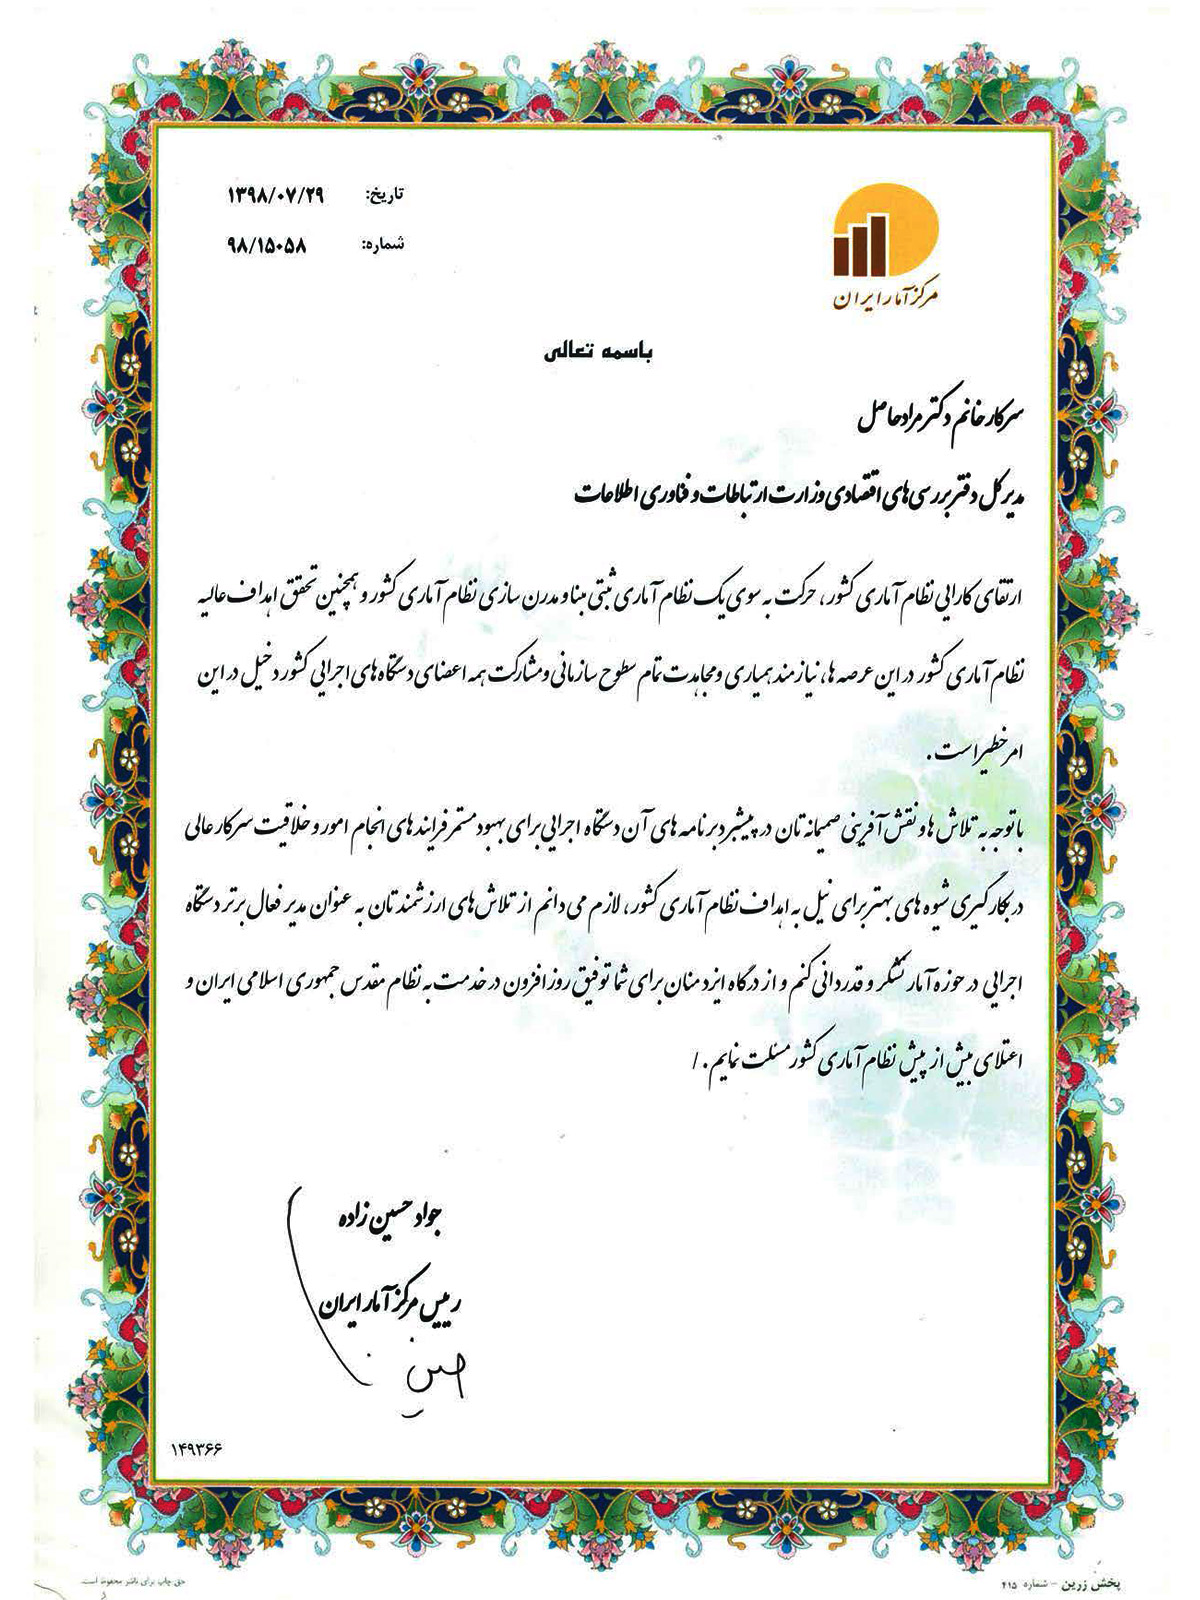 تاریخ: ۱۳۹۸/۰۷/۲۹
شماره: ۹۸/۱۵۰۵۸
مرکز آمار ایران
باسمه تعالی
سرکار خانم دکتر مرادحاصل
مدیر کل دفتر بررسی های اقتصادی وزارت ارتباطات و فناوری اطلاعات
ارتقای کارایی نظام آماری کشور، حرکت به سوی یک نظام آماری ثبتی مبنا و مدرن سازی نظام آماری کشور و همچنین تحقق اهداف عالیه
نظام آماری کشور در این عرصه ها، نیازمند همیاری و مجاهدت تمام سطوح سازمانی و مشارکت همه اعضای دستگاه های اجرایی کشور دخیل در این
امر خطیر است.
با توجه به تلاش ها و نقش آفرینی صمیمانه تان در پیشبرد برنامه های آن دستگاه اجرایی برای بهبود مستمر فرایندهای انجام امور و خلاقیت سرکار عالی
در بکارگیری شیوه های بهتر برای نیل به اهداف نظام آماری کشور، لازم می دانم از تلاش های ارزشمندتان به عنوان مدیر فعال برتر دستگاه
اجرایی در حوزه آمار تشکر و قدردانی کنم و از درگاه ایزد منان برای شما توفیق روزافزون در خدمت به نظام مقدس جمهوری اسلامی ایران و
اعتلای بیش از پیش نظام آماری کشور مسئلت نمایم. /
جواد حسین زاده
رییس مرکز آمار ایران
۱۴۹۳۶۶
پخش زرین - شماره ۴۱۵
حق چاپ برای ناشر محفوظ است.